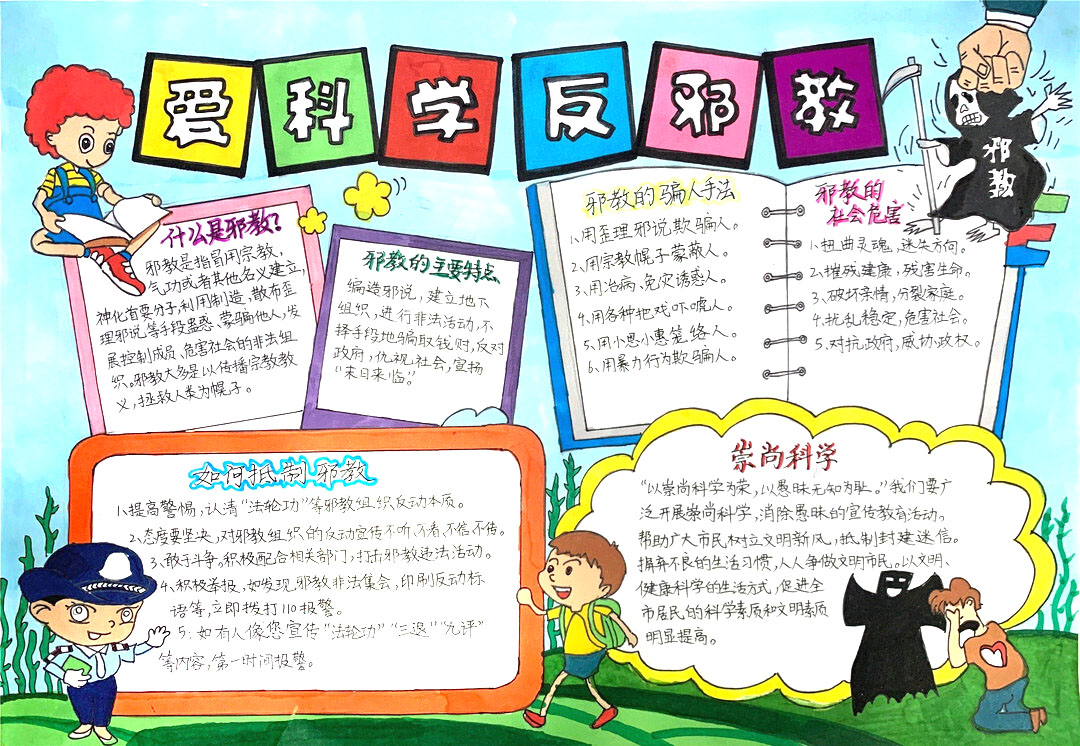 爱科学反邪教
邪教
什么是邪教?
邪教是指冒用宗教,
气功或者其他名义建立,
神化首要分子,利用制造,散布歪
理邪说等手段蛊惑、蒙骗他人,发
展控制成员、危害社会的非法组
织。邪教大多是以传播宗教教
义,拯救人类为幌子。
邪教的主要特点
编造邪说,建立地下
组织,进行非法活动,不
择手段地骗取钱财,反对
政府,仇视社会,宣扬
“末日来临。”
邪教的骗人手法
1.用歪理邪说欺骗人。
2.用宗教幌子蒙蔽人。
3.用治病、免灾诱惑人。
4.用各种把戏吓唬人。
5.用小恩小惠笼络人。
6.用暴力行为欺骗人。
邪教的
社会危害
1.扭曲灵魂,迷失方向。
2.摧残健康,残害生命。
3.破坏亲情,分裂家庭。
4.扰乱稳定,危害社会。
5.对抗政府,威协政权。
如何抵制邪教
1.提高警惕,认清“法轮功”等邪教组织反动本质。
2.态度要坚决,对邪教组织的反动宣传不听,不看,不信,不传。
3.敢于斗争,积极配合相关部门,打击邪教违法活动。
4.积极举报,如发现邪教非法集会,印刷反动标
语等,立即拨打110报警。
5:如有人像您宣传“法轮功”“三退”“九评”
等内容,第一时间报警。
崇尚科学
“以崇尚科学为荣,以愚昧无知为耻。”我们要广
泛开展崇尚科学,消除愚昧的宣传教育活动。
帮助广大市民树立文明新风,抵制封建迷信。
摒弃不良的生活习惯,人人争做文明市民。以文明、
健康科学的生活方式,促进全
市居民的科学素质和文明素质
明显提高。